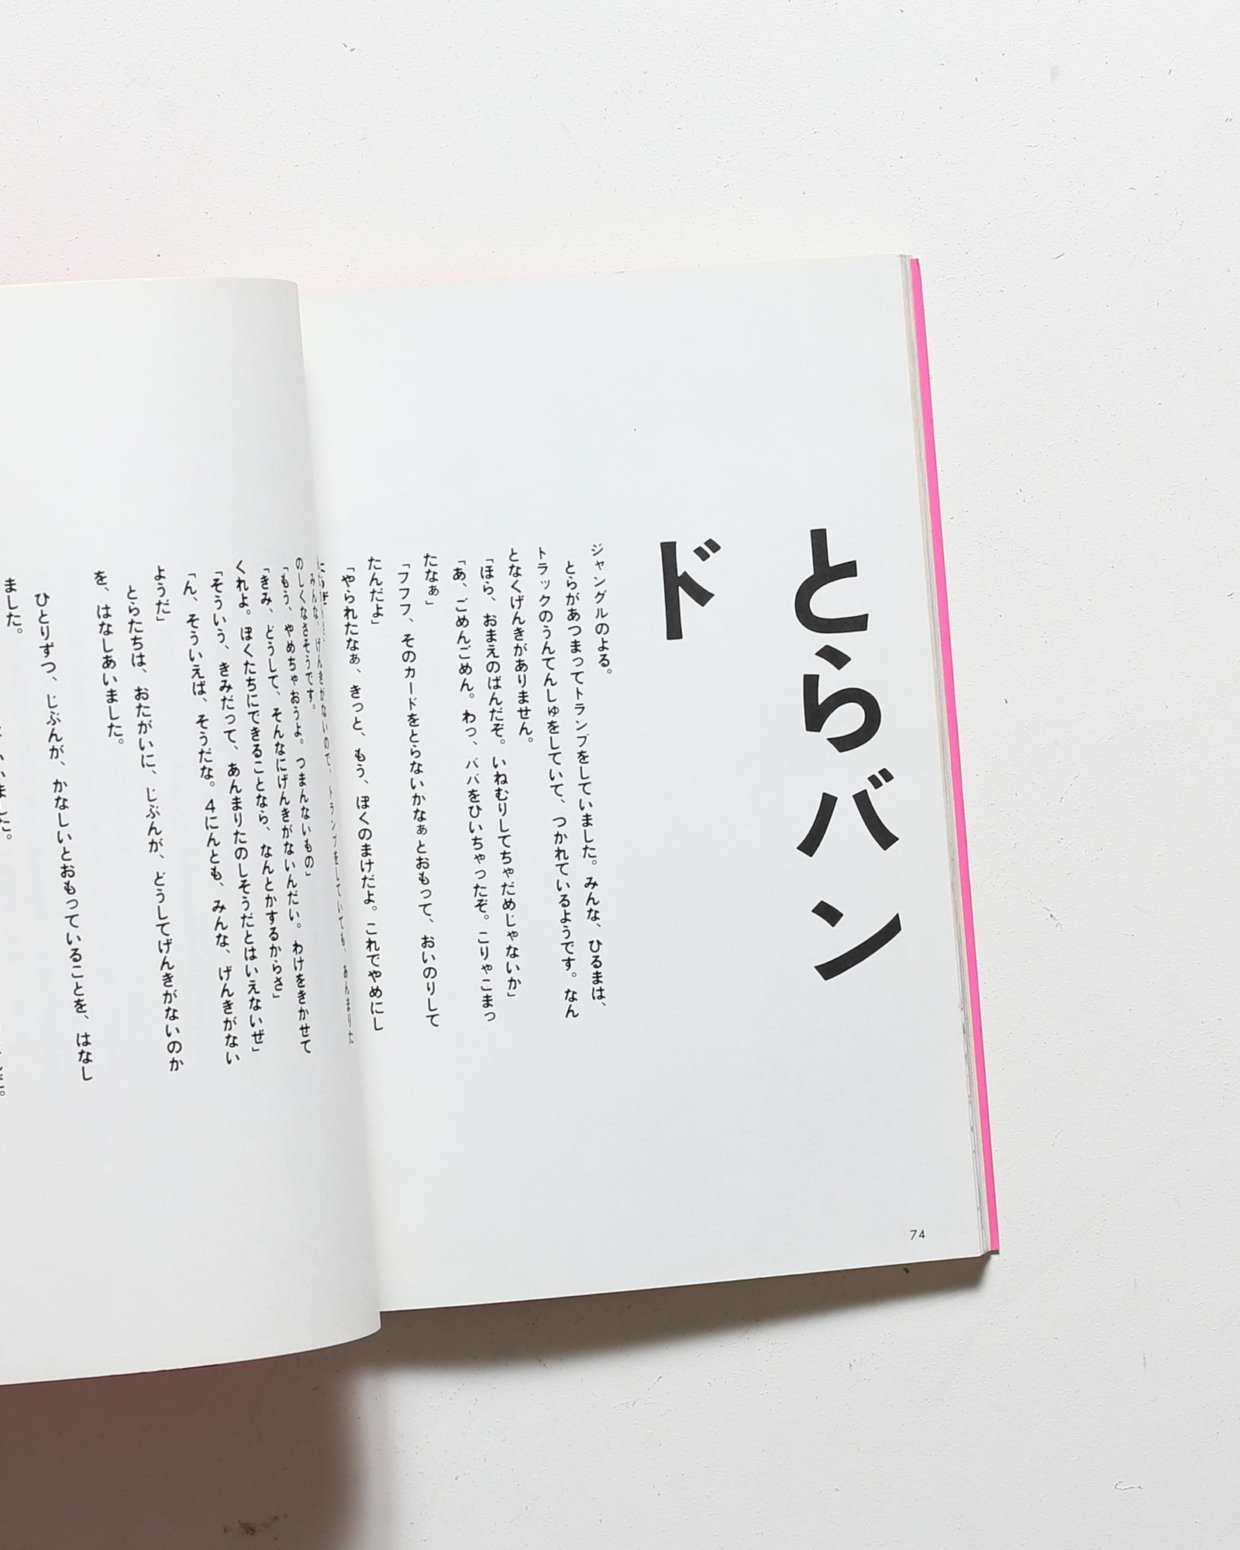 とらバン
ド
ジャングルのよる。
とらがあつまってトランプをしていました。みんな、ひるまは、
トラックのうんてんしゅをしていて、つかれているようです。なん
となくげんきがありません。
「ほら、おまえのばんだぞ。いねむりしてちゃだめじゃないか」
「あ、ごめんごめん。わっ、ババをひいちゃったぞ。こりゃこまっ
たなぁ」
「フフフ、そのカードをとらないかなぁとおもって、おいのりして
たんだよ」
「やられたなぁ、きっと、もう、ぼくのまけだよ。これでやめにし
みんな、げんきがないので、トランプをしていても、あんまりた
のしくなさそうです。
「もう、やめちゃおうよ。つまんないもの」
「きみ、どうして、そんなにげんきがないんだい。わけをきかせて
くれよ。ぼくたちにできることなら、なんとかするからさ」
「そういう、きみだって、あんまりたのしそうだとはいえないぜ」
「ん、そういえば、そうだな。4にんとも、みんな、げんきがない
ようだ」
とらたちは、おたがいに、じぶんが、どうしてげんきがないのか
を、はなしあいました。
ひとりずつ、じぶんが、かなしいとおもっていることを、はなし
ました。
いました。
74